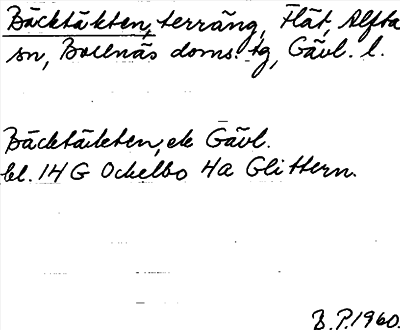 Bäcktäkten, terräng, Flät, Alfta
sn, Bollnäs doms. tg, Gävl. l.
Bäcktäkten, ek Gävl.
bl. 14 G Ockelbo 4a Glittern.
B.P. 1960.